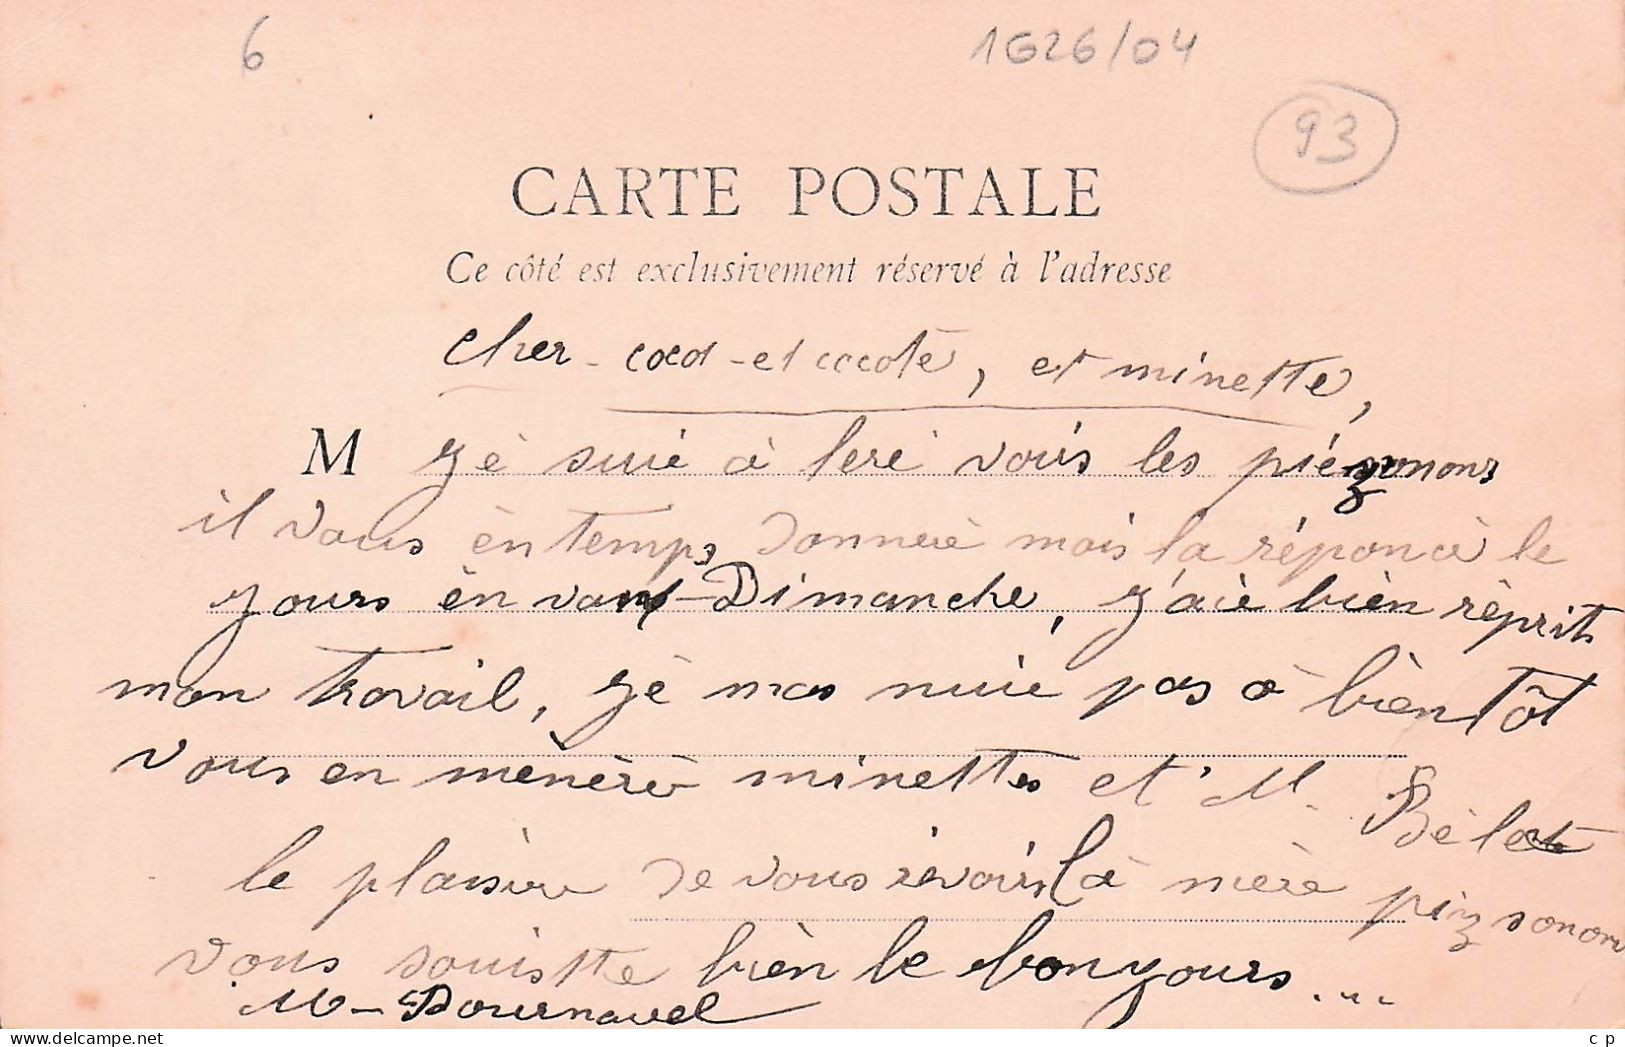 6
1G26/04
93
CARTE POSTALE
Ce côté est exclusivement réservé à l'adresse
Cher - coco - et cocote, et minette,
M gé suie à leré vous les
il vous én temps donneré mais la réponce le
yours én Dimanche, y'aie bien réprit
mon travail, gé mas nuié pas à bientôt
vous en ménéré minettes et M. Bélot
le plaisire de vous révoir, la mère
vous souistte bién le bonyours ...
M - Dournavel
cp